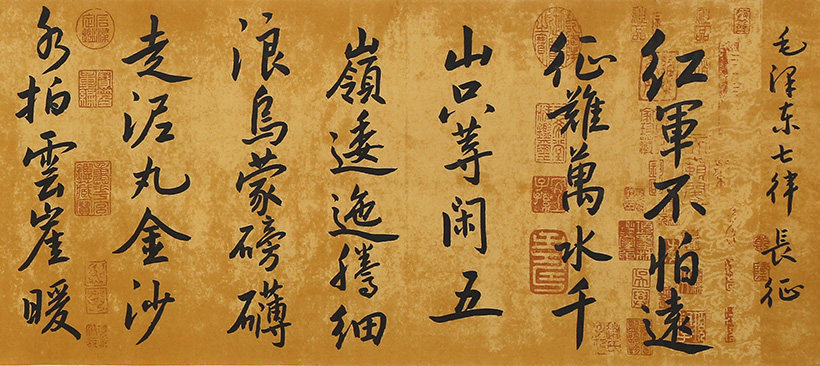 毛泽东七律 長征
紅軍不怕遠
征難萬水千
山只等闲五
嶺逶迤騰细
浪烏蒙磅礴
走泥丸金沙
水拍雲崖暖